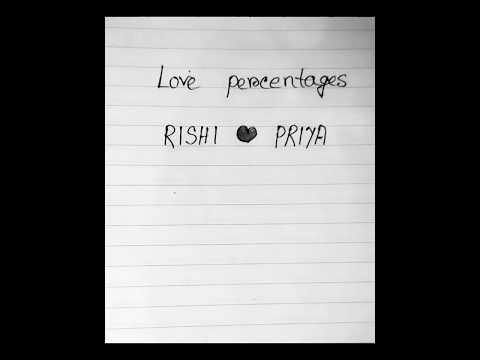 Love percentages
RISHI ♥ PRIYA